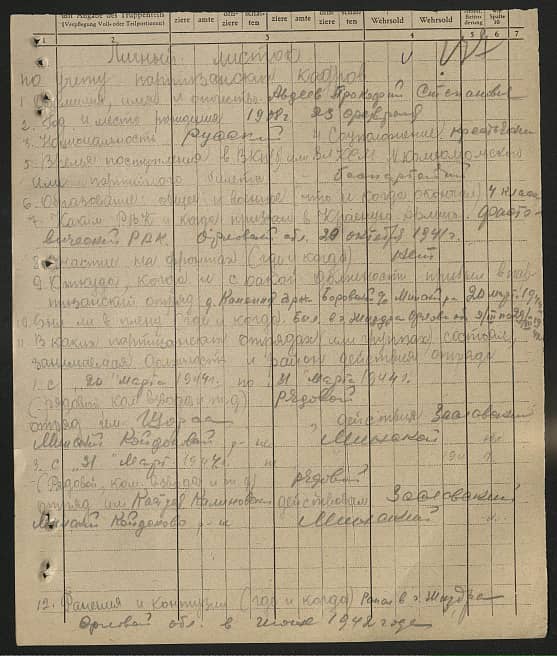 mit Angabe des Truppenteils
(Verpflegung Voll- oder Teilportionen)
ziere amte ziere amte ten
Wehrsold Wehrsold
1 2 3 4 5 6 7
Личный листок
по учету партизанских кадров
1. Фамилия, имя и отчество Авдеев Прокофий Степанович
2. Год и место рождения 1908г. 23 февраля
3. Национальность Русский 4 Соцположение крестьянин
5. Время поступления в ВКП(б) или ВЛКСМ
или партийного билета беспартийный
6. Образование: общее и военное что и когда окончил 4 класса
7. Каким РВК и когда призван в Красную Армию.
РВК Орловской обл. 20 октября 1941г.
8. Участие на фронтах (где и когда) нет
9. Откуда, когда и с какой должности пришел в пар-
тизанский отряд д. Боровой 20 март 194
10. Был ли в плену где и когда Был в г. Жиздра
11. В каких партизанских отрядах или группах состоял,
занимаемая должность и район действия отряда
1. с "20" марта 1944г. по "31" марта 1944г.
(рядовой, ком. взвода и т.д) Рядовой
отряд им. Щорса действия Заславский
Минский Койдановский р-не Минской
2. с "31" Март 194 г.
(Рядовой, ком. взвода и т.д) Рядовой
отряд им Калиновского действовал Заславский
Минский Койданово р-не Минской
12. Ранения и контузии (где и когда) Ранен в г. Жиздра
Орловской обл. в Июне 1942 года